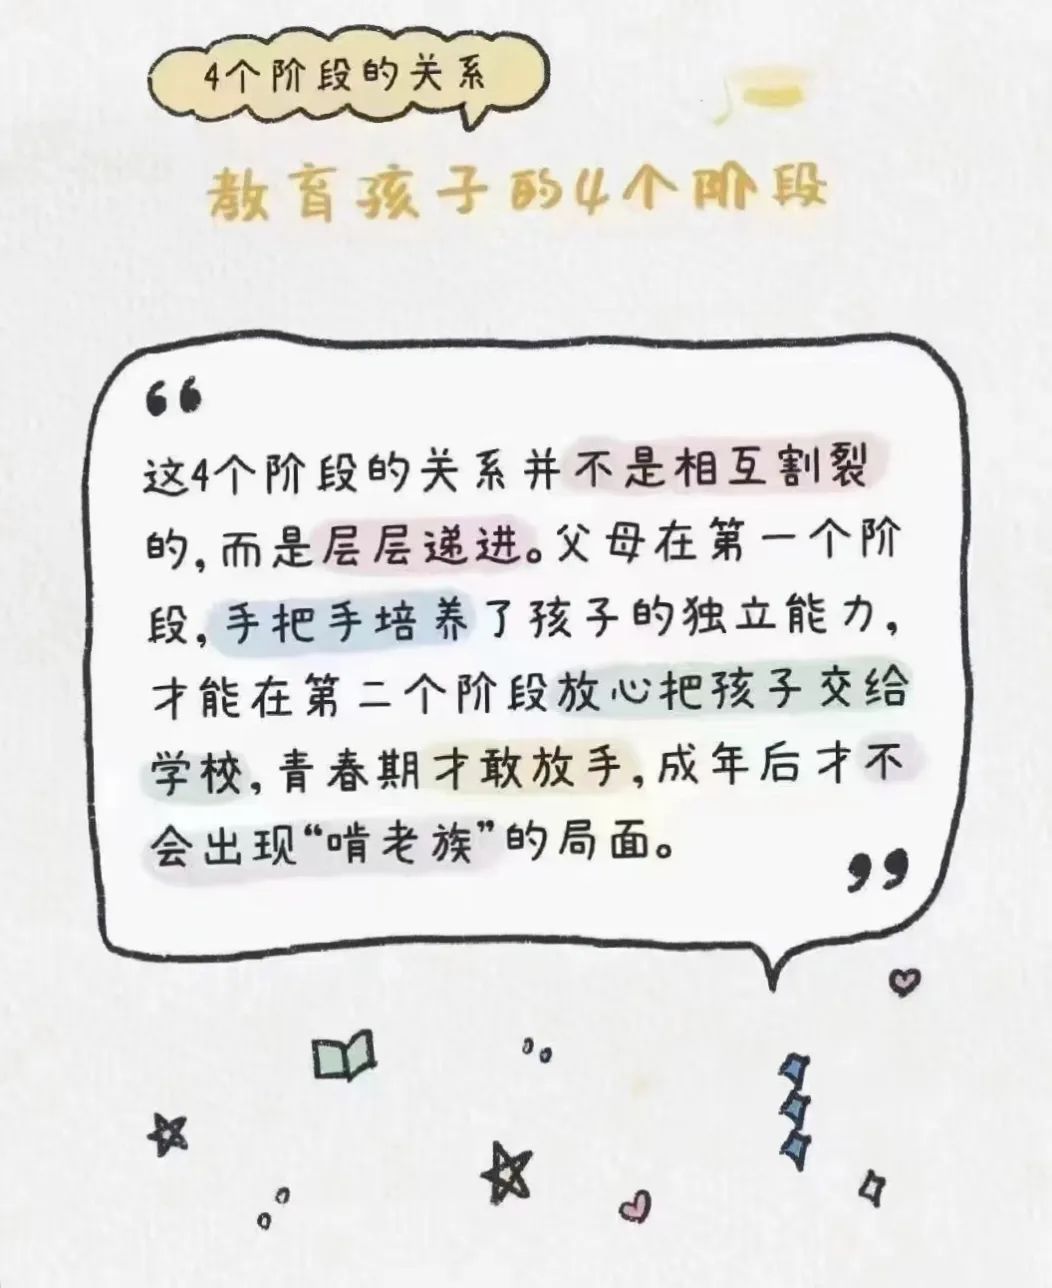 4个阶段的关系
教育孩子的4个阶段
“
这4个阶段的关系并不是相互割裂
的,而是层层递进。父母在第一个阶
段,手把手培养了孩子的独立能力,
才能在第二个阶段放心把孩子交给
学校,青春期才敢放手,成年后才不
会出现“啃老族”的局面。
”